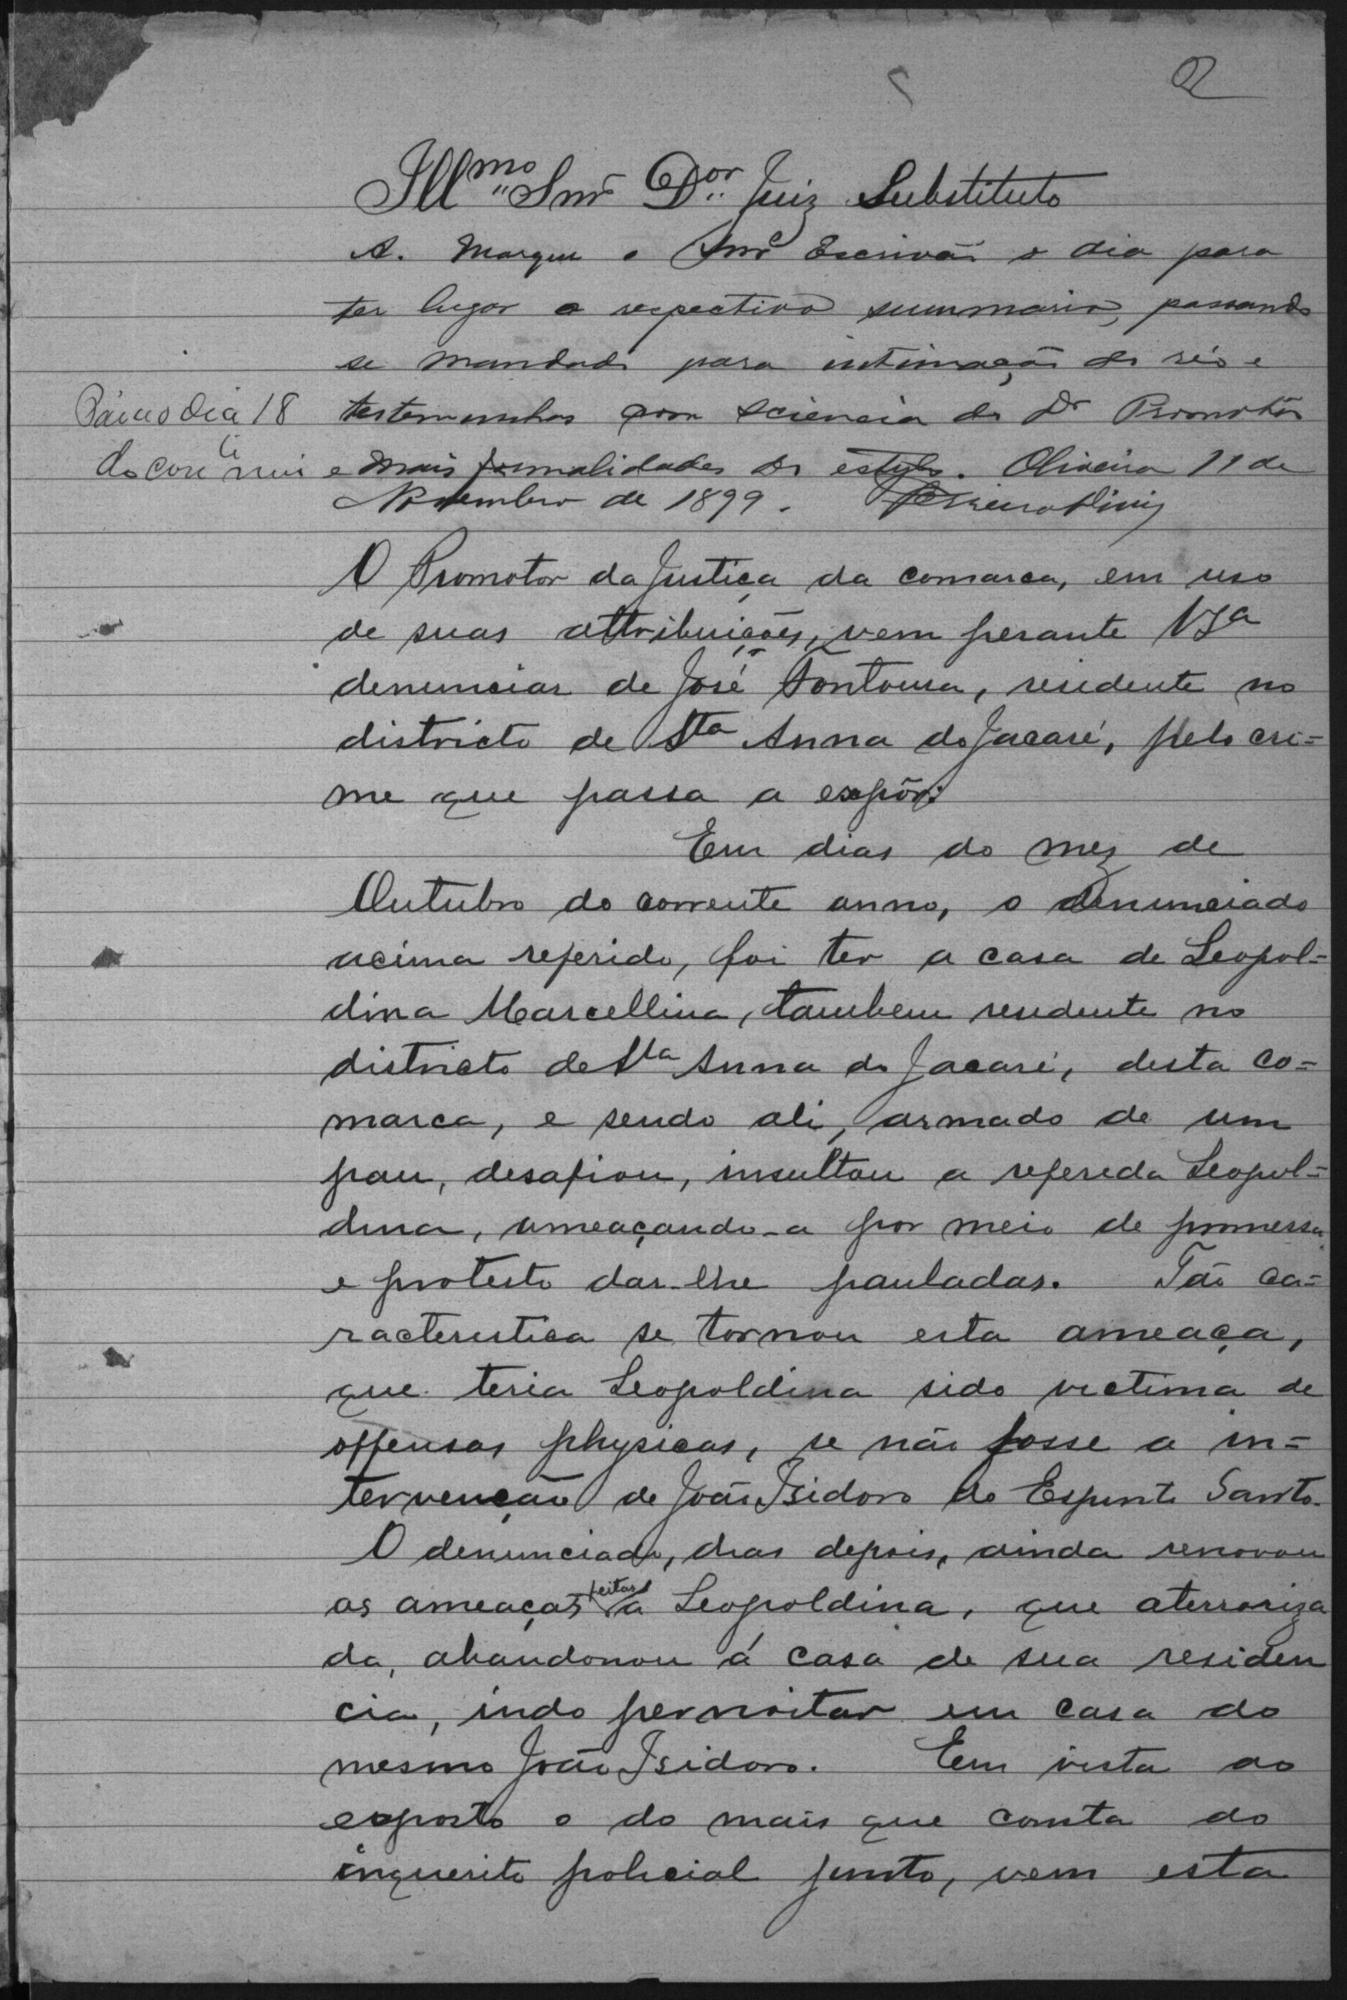 2
Illmo Snr Dor Juiz Substituto
A. Marque o Snr Escrivão o dia para
ter lugar o respectivo summario, passando
se mandado para intimação do réo e
testemunhas com sciencia do Dr Promotor
e mais formalidades do estylo. Oliveira 11 de
Novembro de 1899.
dia 18
do
O Promotor da Justiça da comarca, em uso
de suas attribuições, vem perante VSa
denunciar de José Fontoura, residente no
districto de Sta Anna do Jacaré, pelo cri=
me que passa a expôr:
Em dias do mez de
Outubro do corrente anno, o denunciado
acima referido, foi ter a casa de Leopol=
dina Marcellina, tambem residente no
districto de Sta Anna do Jacaré, desta co=
marca, e sendo ali, armado de um
pau, desafiou, insultou a referida Leopol=
dina, ameaçando-a por meio de promessa
e protesto dar-lhe pauladas. Tão ca=
racteristica se tornou esta ameaça,
que teria Leopoldina sido victima de
offensas physicas, se não fosse a in=
tervenção de João Isidoro do Espirito Santo.
O denunciado, dias depois, ainda renovou
as ameaças feitas a Leopoldina, que aterroriza
da, abandonou á casa de sua residen
cia, indo pernoitar em casa do
mesmo João Isidoro. Em vista do
exposto e do mais que consta do
inquerito policial junto, vem esta